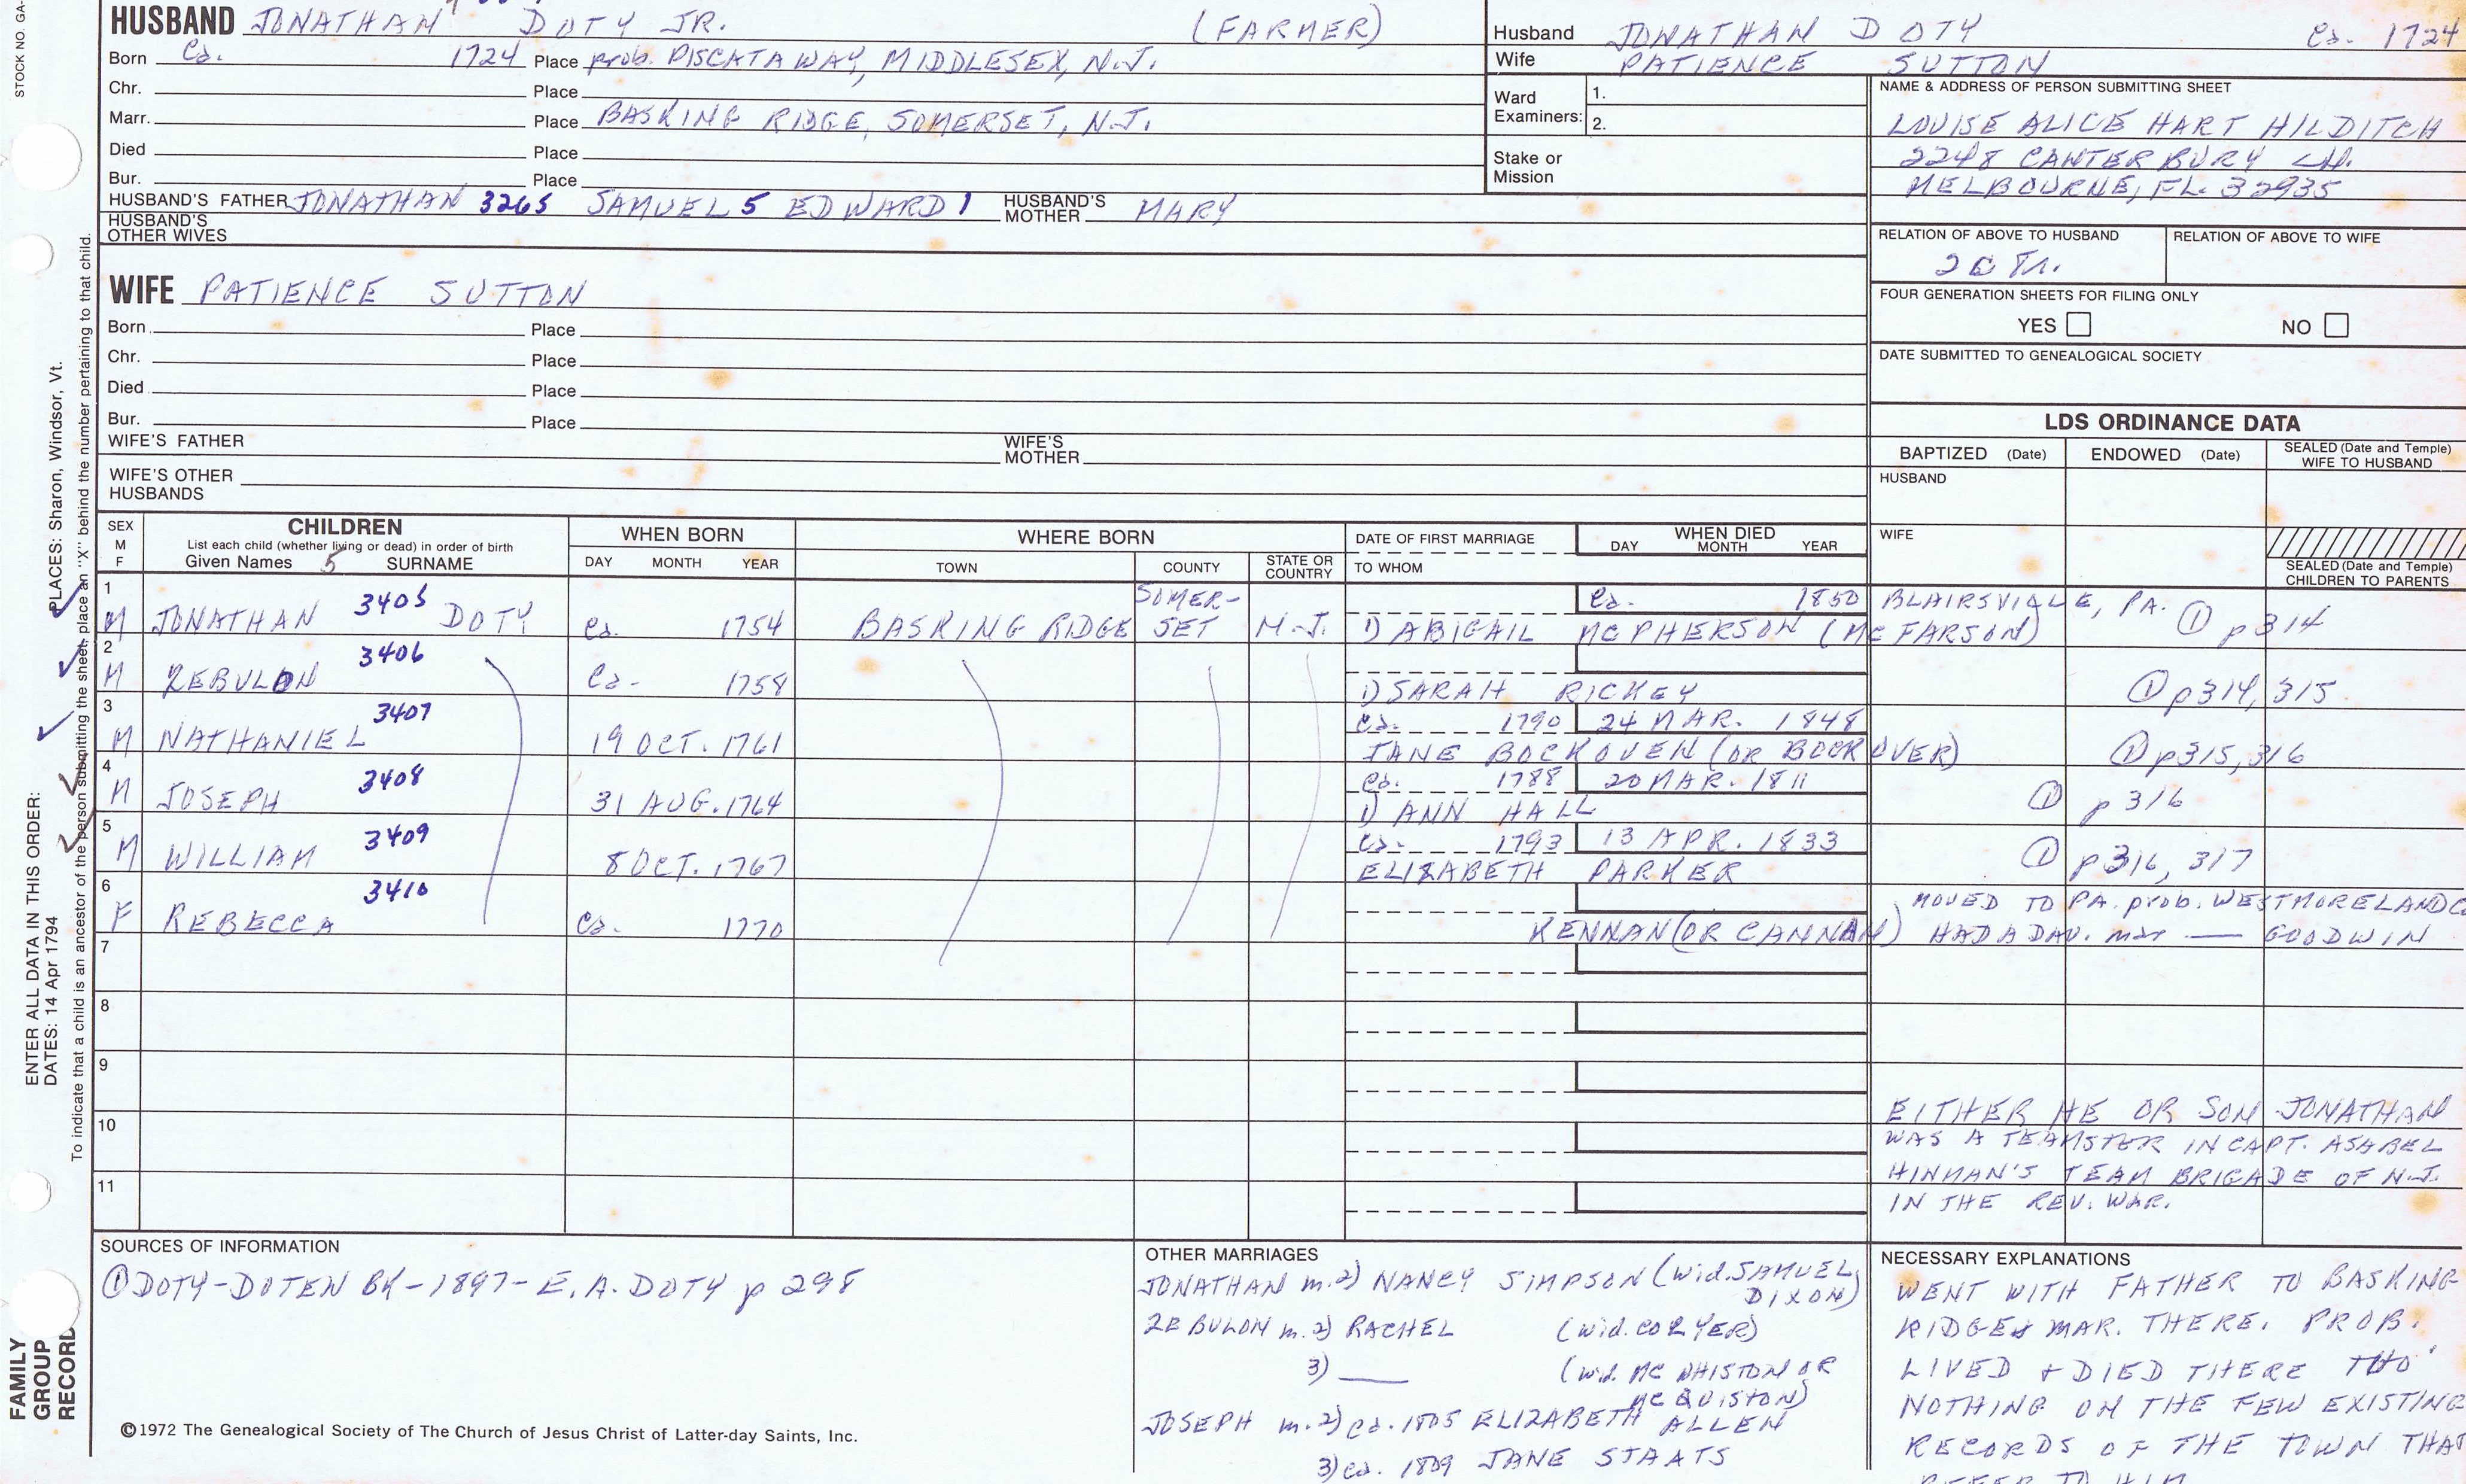 STOCK NO. GA-
HUSBAND JONATHAN DOTY JR. (FARMER)
Born Ca. 1724 Place prob. PISCATAWAY, MIDDLESEX, N.J.
Chr. Place
Marr. Place BASKING RIDGE, SOMERSET, N.J.
Died Place
Bur. Place
HUSBAND'S FATHER JONATHAN 3265 SAMUEL 5 EDWARD 1 HUSBAND'S MOTHER MARY
HUSBAND'S OTHER WIVES
Husband JONATHAN DOTY Ca. 1724
Wife PATIENCE SUTTON
Ward Examiners: 1.
2.
Stake or Mission
NAME & ADDRESS OF PERSON SUBMITTING SHEET
LOUISE ALICE HART HILDITCH
2248 CANTERBURY LN.
MELBOURNE, FL. 32935
RELATION OF ABOVE TO HUSBAND RELATION OF ABOVE TO WIFE
FOUR GENERATION SHEETS FOR FILING ONLY
YES NO
DATE SUBMITTED TO GENEALOGICAL SOCIETY
WIFE PATIENCE SUTTON
Born Place
Chr. Place
Died Place
Bur. Place
WIFE'S FATHER WIFE'S MOTHER
WIFE'S OTHER HUSBANDS
LDS ORDINANCE DATA
BAPTIZED (Date) ENDOWED (Date) SEALED (Date and Temple) WIFE TO HUSBAND
HUSBAND
WIFE
SEALED (Date and Temple) CHILDREN TO PARENTS
SEX M F
CHILDREN
List each child (whether living or dead) in order of birth
Given Names 5 SURNAME
WHEN BORN
DAY MONTH YEAR
WHERE BORN
TOWN COUNTY STATE OR COUNTRY
DATE OF FIRST MARRIAGE
TO WHOM
WHEN DIED
DAY MONTH YEAR
1 3405 SOMER- Ca. 1850 BLAIRSVILLE, PA.
M JONATHAN DOTY Ca. 1754 BASKING RIDGE SET N.J. 1) ABIGAIL MCPHERSON (MCFARSON) ① p 314
2 3406
M ZEBULON Ca. 1758 1) SARAH RICKEY ① p314, 315
3 3407 Ca. 1790 24 MAR. 1848
M NATHANIEL 19 OCT. 1761 JANE BOCKOVEN (OR BOCKOVER) ① p315, 316
4 3408 Ca. 1788 20 MAR. 1811
M JOSEPH 31 AUG. 1764 1) ANN HALL ① p 316
5 3409 Ca. 1793 13 APR. 1833
M WILLIAM 8 OCT. 1767 ELIZABETH PARKER ① p316, 317
6 3410 MOVED TO PA. prob. WESTMORELAND CO
F REBECCA Ca. 1770 KENNAN (OR CANNAN) HAD A DAU. mar — GOODWIN
7
8
9
10
11
EITHER HE OR SON JONATHAN
WAS A TEAMSTER IN CAPT. ASABEL
HINMAN'S TEAM BRIGADE OF N.J.
IN THE REV. WAR.
SOURCES OF INFORMATION
① DOTY-DOTEN BK-1897-E.A. DOTY p 298
©1972 The Genealogical Society of The Church of Jesus Christ of Latter-day Saints, Inc.
OTHER MARRIAGES
JONATHAN m. 2) NANCY SIMPSON (Wid. SAMUEL DIXON)
ZEBULON m. 2) RACHEL (Wid. CORYER)
3) ___ (Wid. MC WHISTON OR
MC QUISTON)
JOSEPH m. 2) Ca. 1805 ELIZABETH ALLEN
3) Ca. 1809 JANE STAATS
NECESSARY EXPLANATIONS
WENT WITH FATHER TO BASKING
RIDGE & MAR. THERE. PROB.
LIVED + DIED THERE THO'
NOTHING ON THE FEW EXISTING
RECORDS OF THE TOWN THAT
REFER TO HIM
FAMILY GROUP RECORD
ENTER ALL DATA IN THIS ORDER:
DATES: 14 Apr 1794
PLACES: Sharon, Windsor, Vt.
To indicate that a child is an ancestor of the person submitting the sheet, place an "X" behind the number pertaining to that child.